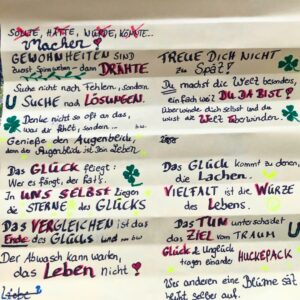 SOLLTE, HÄTTE, WÜRDE, KÖNNTE...
Machen!
GEWOHNHEITEN SIND
zuerst Spinnweben - dann DRÄHTE.
Suche nicht nach Fehlern, sondern
SUCHE nach LÖSUNGEN.
Denke nicht so oft an das,
was dir fehlt, sondern ... bw
Genieße den Augenblick,
denn der Augenblick ist Dein Leben
Das GLÜCK fängt:
Wer es fängt, der hat's.
In UNS SELBST liegen
die STERNE des GLÜCKS
Das VERGLEICHEN ist das
Ende des GLÜCKS und ... bw
Der Abwasch kann warten,
das Leben nicht!
Liebe
TREUE DICH NICHT
zu Spät!
Du machst die Welt besonders,
einfach weil DU DA BIST!
Überwinde dich selbst und du
wirst die Welt überwinden.
Das GLÜCK kommt zu denen,
die Lachen.
VIELFALT ist die WÜRZE
des Lebens.
Das TUN unterscheidet
das ZIEL vom TRAUM
Glück & Unglück
tragen einander HUCKEPACK
Wer anderen eine Blume sät
blüht selber auf.